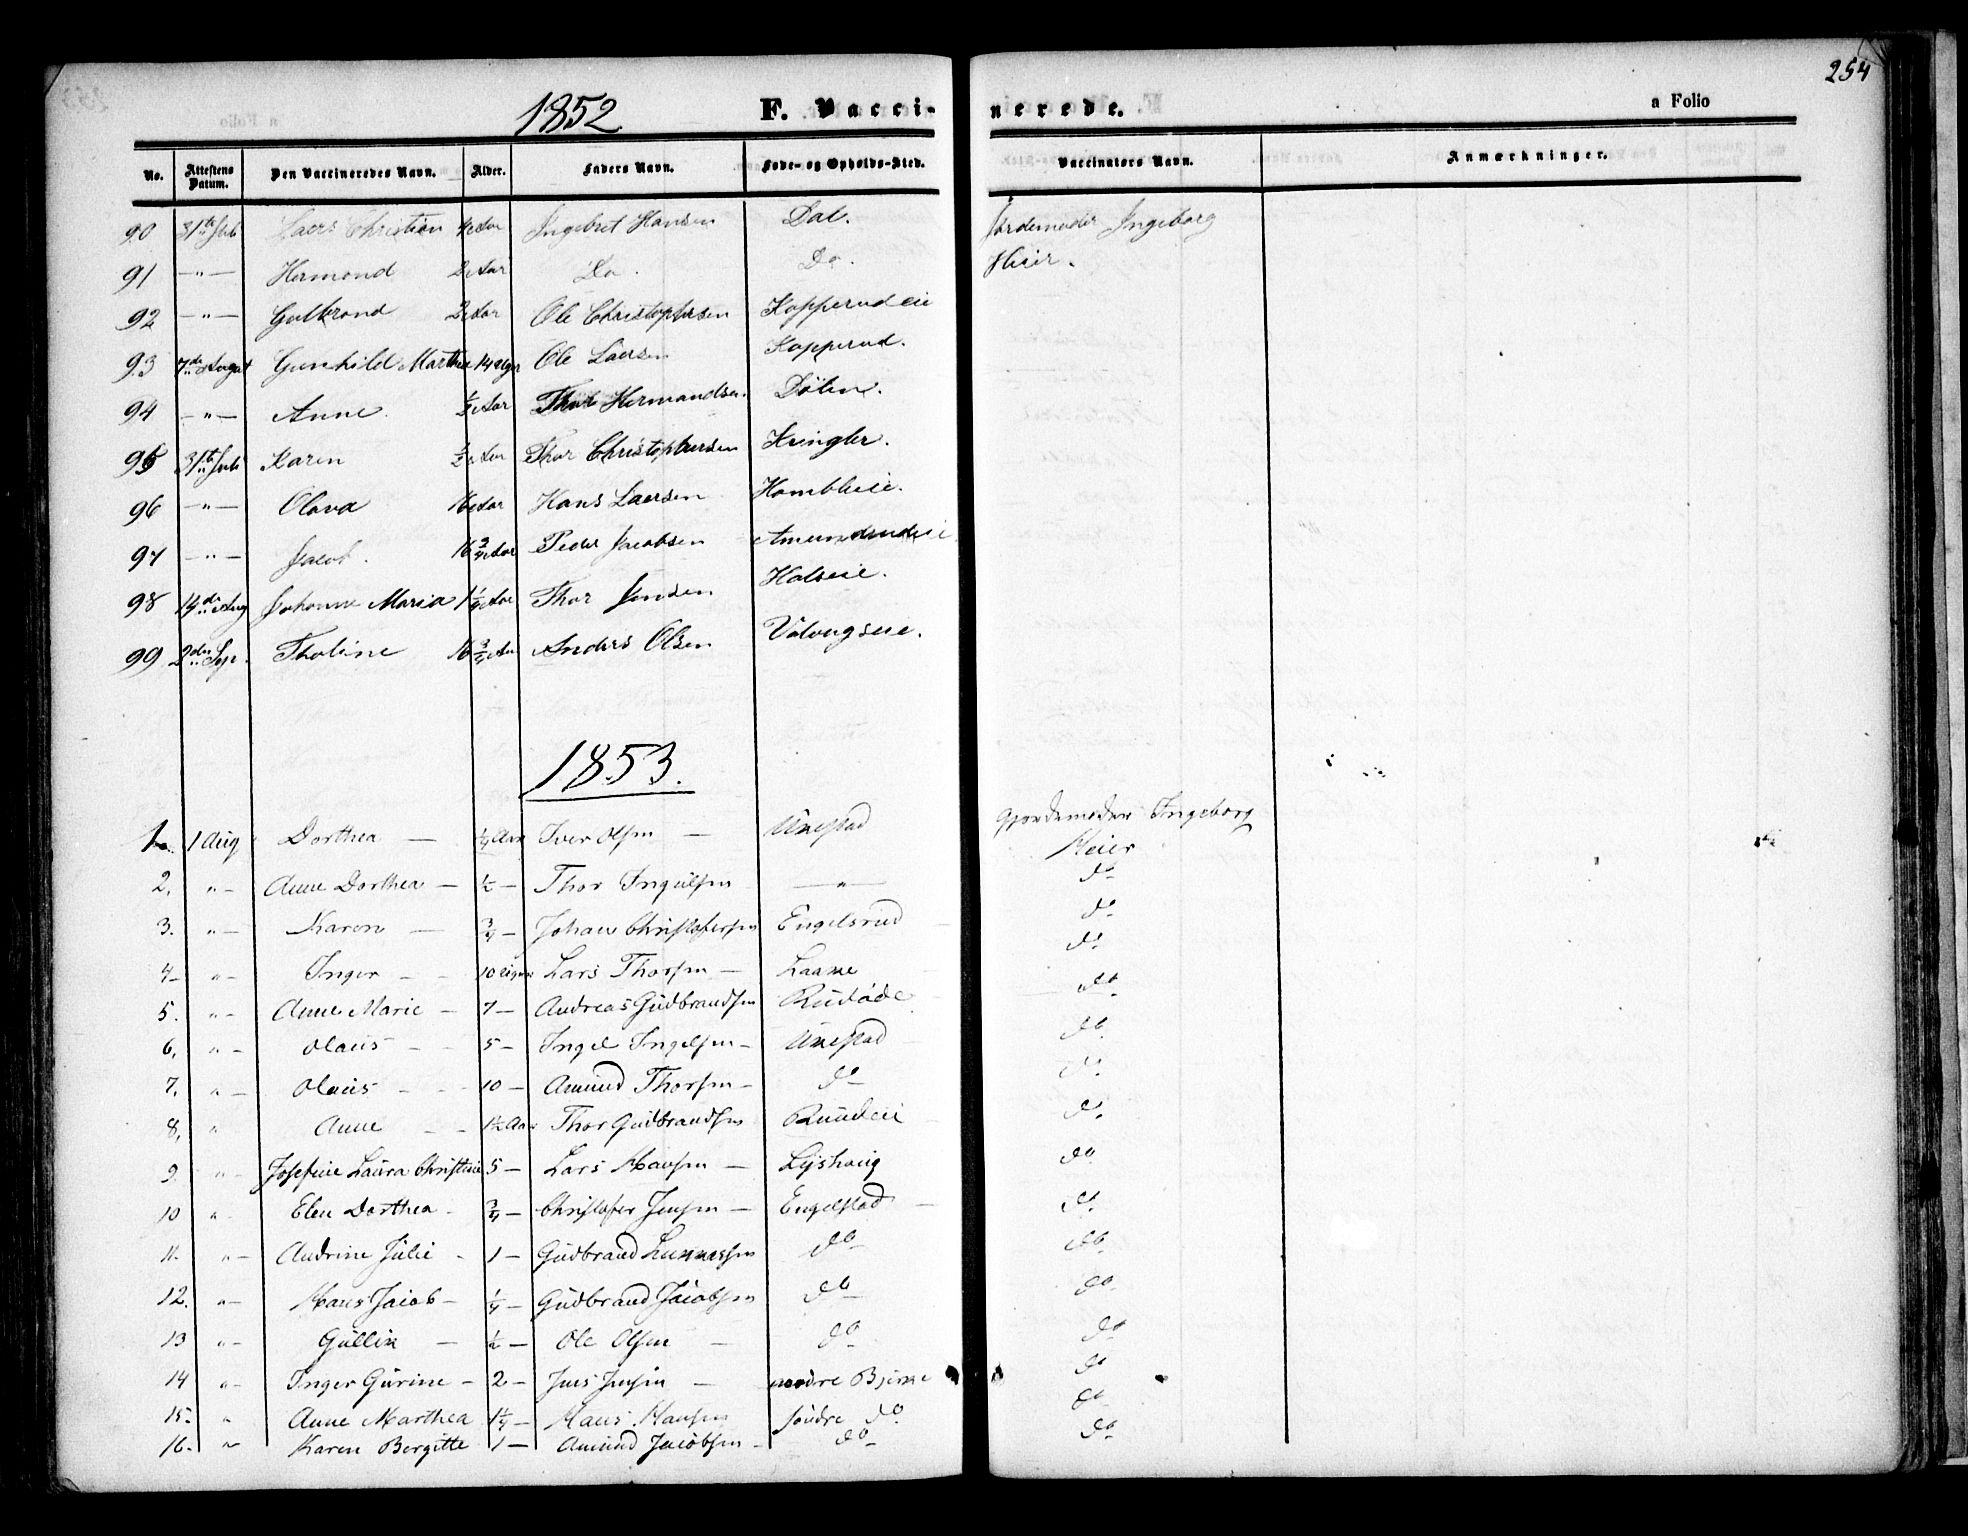 254
1852 F. Vaccinerede. a Folio
No. Attestens Datum. Den Vaccineredes Navn. Alder. Faders Navn. Føde- og Opholds-Sted. Vaccinators Navn. Anmærkninger.
90 31te Juli Laers Christian Aar Ingebret Hansen Dal. Jordemoder Ingeborg
91 —"— Hermond 2 Aar Do. Do. Heier.
92 —"— Gulbrand Aar Ole Christophersen Kopperudeie
93 7de August Gunhild Marthea 14 Uger Ole Laersen Kopperud.
94 —"— Anne Aar Thor Hermandsen Dølen.
95 31te Juli Karen ½ Aar Thor Christophersen Kringler.
96 —"— Olava Aar Hans Laersen
97 —"— Jacob. Aar Peder Jacobsen Amundrudeie
98 14de Aug Johanne Maria 1¼ Aar Thor Jensen
99 2den Sep. Tholine Aar Anders Olsen
1853.
1. 1 Aug Dorthea — ¼ Aar Iver Olsen — Unestad Gjordemoder Ingeborg
Heier
2. "— Anne Dorthea — ½ — Thor Ingulsen —"— do
3. "— Karen — ¾ — Johan Christofersen Engelsrud do
4 — "— Inger — 10 Uger Lars Thorsen — Laake do
5. "— Anne Marie — 7 — Andreas Gudbrandsen do
6. "— Olaus — 5 — Ingel Ingelsen — Unestad do
7. "— Olaus — 10 — Amund Thorsen — do do
8. " Anne — 1½ Aar Thor Gudbrandsen Ruudeie do
9 "— Josefine Laura Christine 5 — Lars Hansen — Lyshaug do
10 "— Elen Dorthea — ¾ — Christofer Jensen — Engelstad — do
11. "— Andrine Julie — 1 — Gudbrand do do
12. "— Hans Jacob — ¼ — Gudbrand Jacobsen do do
13 "— Gullik — ½ — Ole Olsen — do do
14 "— Inger Gurine — 2 — Jens Jensen — nordre Bjerke do
15 — " Anne Marthea 1¼ — Hans Hansen søndre do do
16 — " Karen Bergitte 1 — Amund Jacobsen — do do